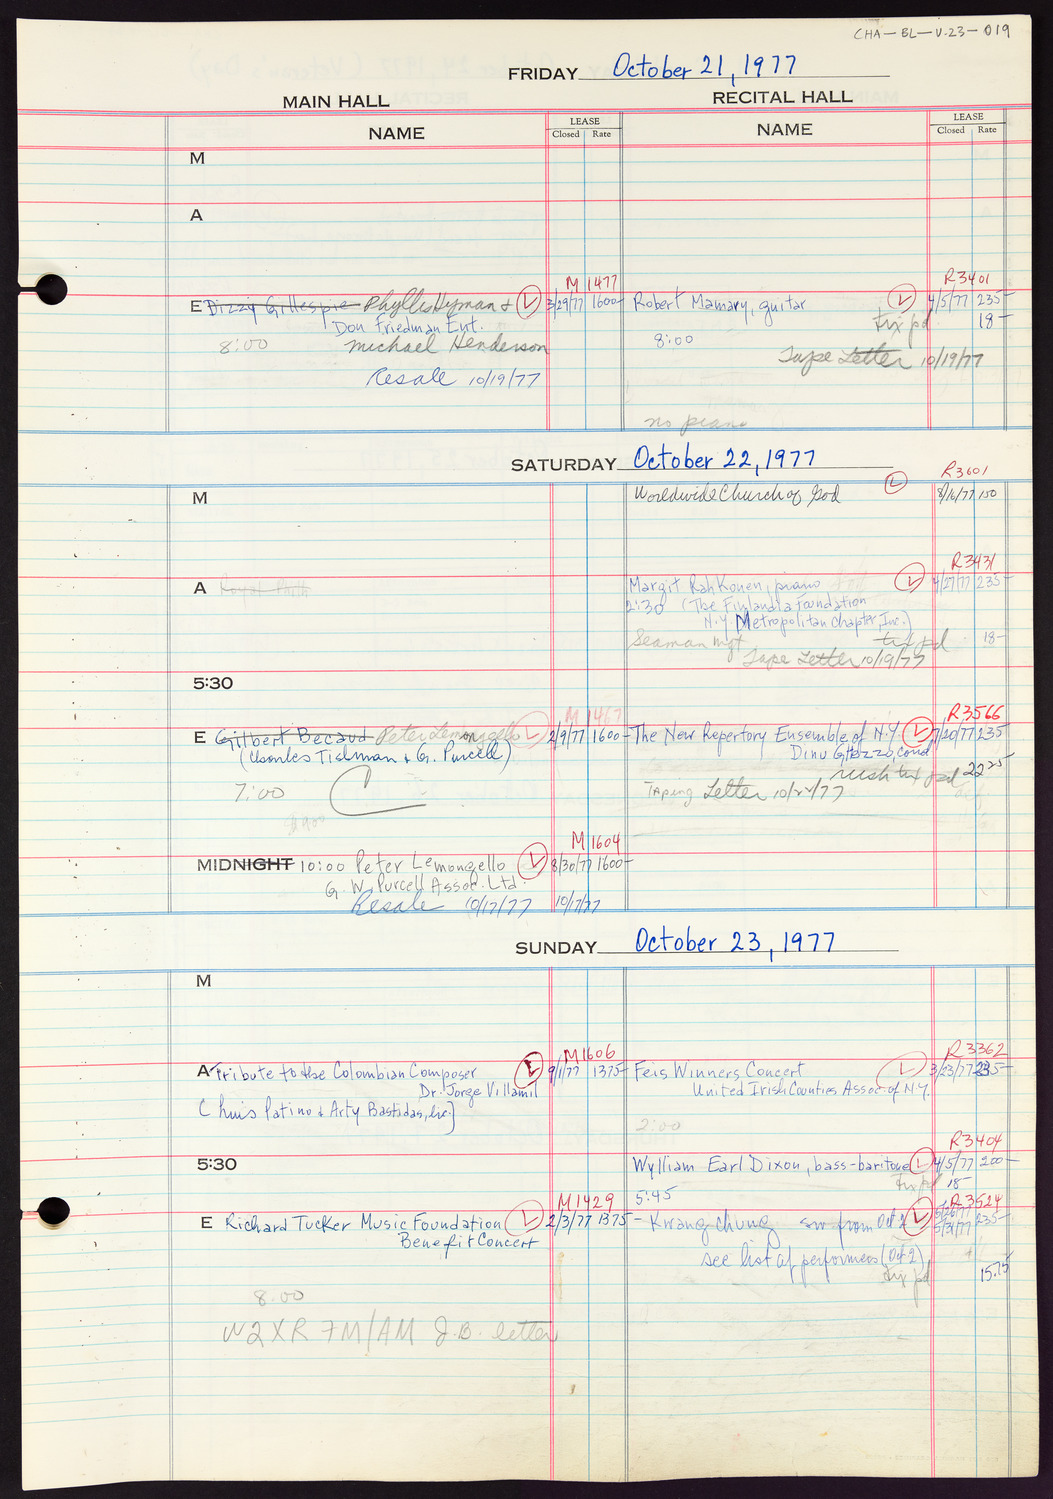 CHA-BL-V.23-019
FRIDAY October 21, 1977
MAIN HALL
RECITAL HALL
NAME LEASE Closed Rate NAME LEASE Closed Rate
M
A
M 1477 R3401
E Dizzy Gillespie Phyllis Hyman & L 3/29/77 1600- Robert Mamary, guitar L 4/5/77 235-
Don Friedman Ent. tix pd 18-
8:00 Michael Henderson 8:00
Tape Letter 10/19/77
Resale 10/19/77
no piano
SATURDAY October 22, 1977
R3601
M Worldwide Church of God L 8/16/77 150
R3431
A Margit Rahkonen, piano L 4/27/77 235-
2:30 (The Finlandia Foundation
N.Y. Metropolitan Chapter, Inc.)
Seaman Mgt tix pd 18-
Tape Letter 10/19/77
5:30
M 1467 R3566
E Gilbert Becaud Peter Lemongello L 2/9/77 1600- The New Repertory Ensemble of N.Y. L 7/20/77 235
(Charles Tisman & G. Purcell) Dinu Ghezzo, cond
C rush tix pd 22.25
7:00 Taping Letter 10/22/77
$900
M 1604
MIDNIGHT 10:00 Peter Lemongello L 8/30/77 1600-
G. W. Purcell Assoc. Ltd.
Resale 10/17/77 10/17/77
SUNDAY October 23, 1977
M
M1606 R3362
A Tribute to the Colombian Composer L 9/1/77 1375- Feis Winners Concert L 3/23/77 235-
Dr. Jorge Villamil United Irish Counties Assoc. of N.Y.
(Chuis Patino & Arty Bastidas, Inc.)
2:00
R3404
5:30 Wylliam Earl Dixon, bass-baritone L 4/5/77 200-
tix pd 18-
M1429 5:45 R3524
E Richard Tucker Music Foundation L 2/3/77 1375- Kwang chung sw from Oct 2 L 5/26/77 235-
Benefit Concert 5/31/77
see list of performers (Oct 2)
tix pd 15.75
8:00
W2XR FM/AM J.B. letter